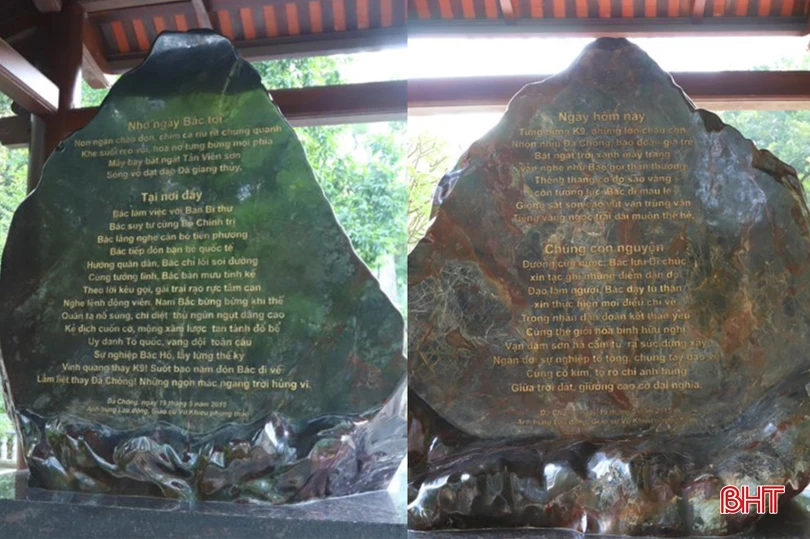 Nhớ ngày Bác tới
Non ngàn chào đón, chim ca ríu rít chung quanh
Khe suối reo vui, hoa nở tưng bừng mọi phía
Mây bay bát ngát Tản Viên sơn
Sóng vỗ dạt dào Đà giang thủy.
Tại nơi đây
Bác làm việc với Ban Bí thư
Bác suy tư cùng Bộ Chính trị
Bác lắng nghe cán bộ tiền phương
Bác tiếp đón bạn bè quốc tế
Hướng quân dân, Bác chỉ lối soi đường
Cùng tướng lĩnh, Bác bàn mưu tính kế
Theo lời kêu gọi, gái trai rạo rực tâm can
Nghe lệnh động viên, Nam Bắc bừng bừng khí thế
Quân ta nổ súng, chí diệt thù ngùn ngụt dâng cao
Kẻ địch cuốn cờ, mộng xâm lược tan tành đổ bể
Uy danh Tổ quốc, vang dội toàn cầu
Sự nghiệp Bác Hồ, lẫy lừng thế kỷ
Vinh quang thay K9! Suốt bao năm đón Bác đi về
Lẫm liệt thay Đá Chông! Những ngọn mác ngang trời hùng vĩ.
Đá Chông, ngày 19 tháng 5 năm 2015
Anh hùng Lao động, Giáo sư Vũ Khiêu phụng thảo
Ngày hôm nay
Tưng bừng K9, những lớp cháu con
Nhộn nhịp Đá Chông, bao đoàn già trẻ
Bát ngát trời xanh mây trắng
Vẫn nghe như Bác gọi thân thương
Thênh thang cờ đỏ sao vàng
còn tưởng lúc Bác đi mau lẹ
Giọng sắt son, cao vút vạn trùng vân
Tiếng vàng ngọc trải dài muôn thế hệ.
Chúng con nguyện
Đường cứu nước, Bác lưu Di chúc
xin tạc ghi những điểm dặn dò
Đạo làm người, Bác dạy tu thân
xin thực hiện mọi điều chỉ vẽ
Trong nhân dân đoàn kết thân yêu
Cùng thế giới hòa bình hữu nghị
Vạn dặm sơn hà cẩm tú ra sức dựng xây
Ngàn đời sự nghiệp tổ tông, chung tay bảo vệ
Cùng cổ kim, tỏ rõ chí anh hùng
Giữa trời đất, giương cao cờ đại nghĩa.
BHT